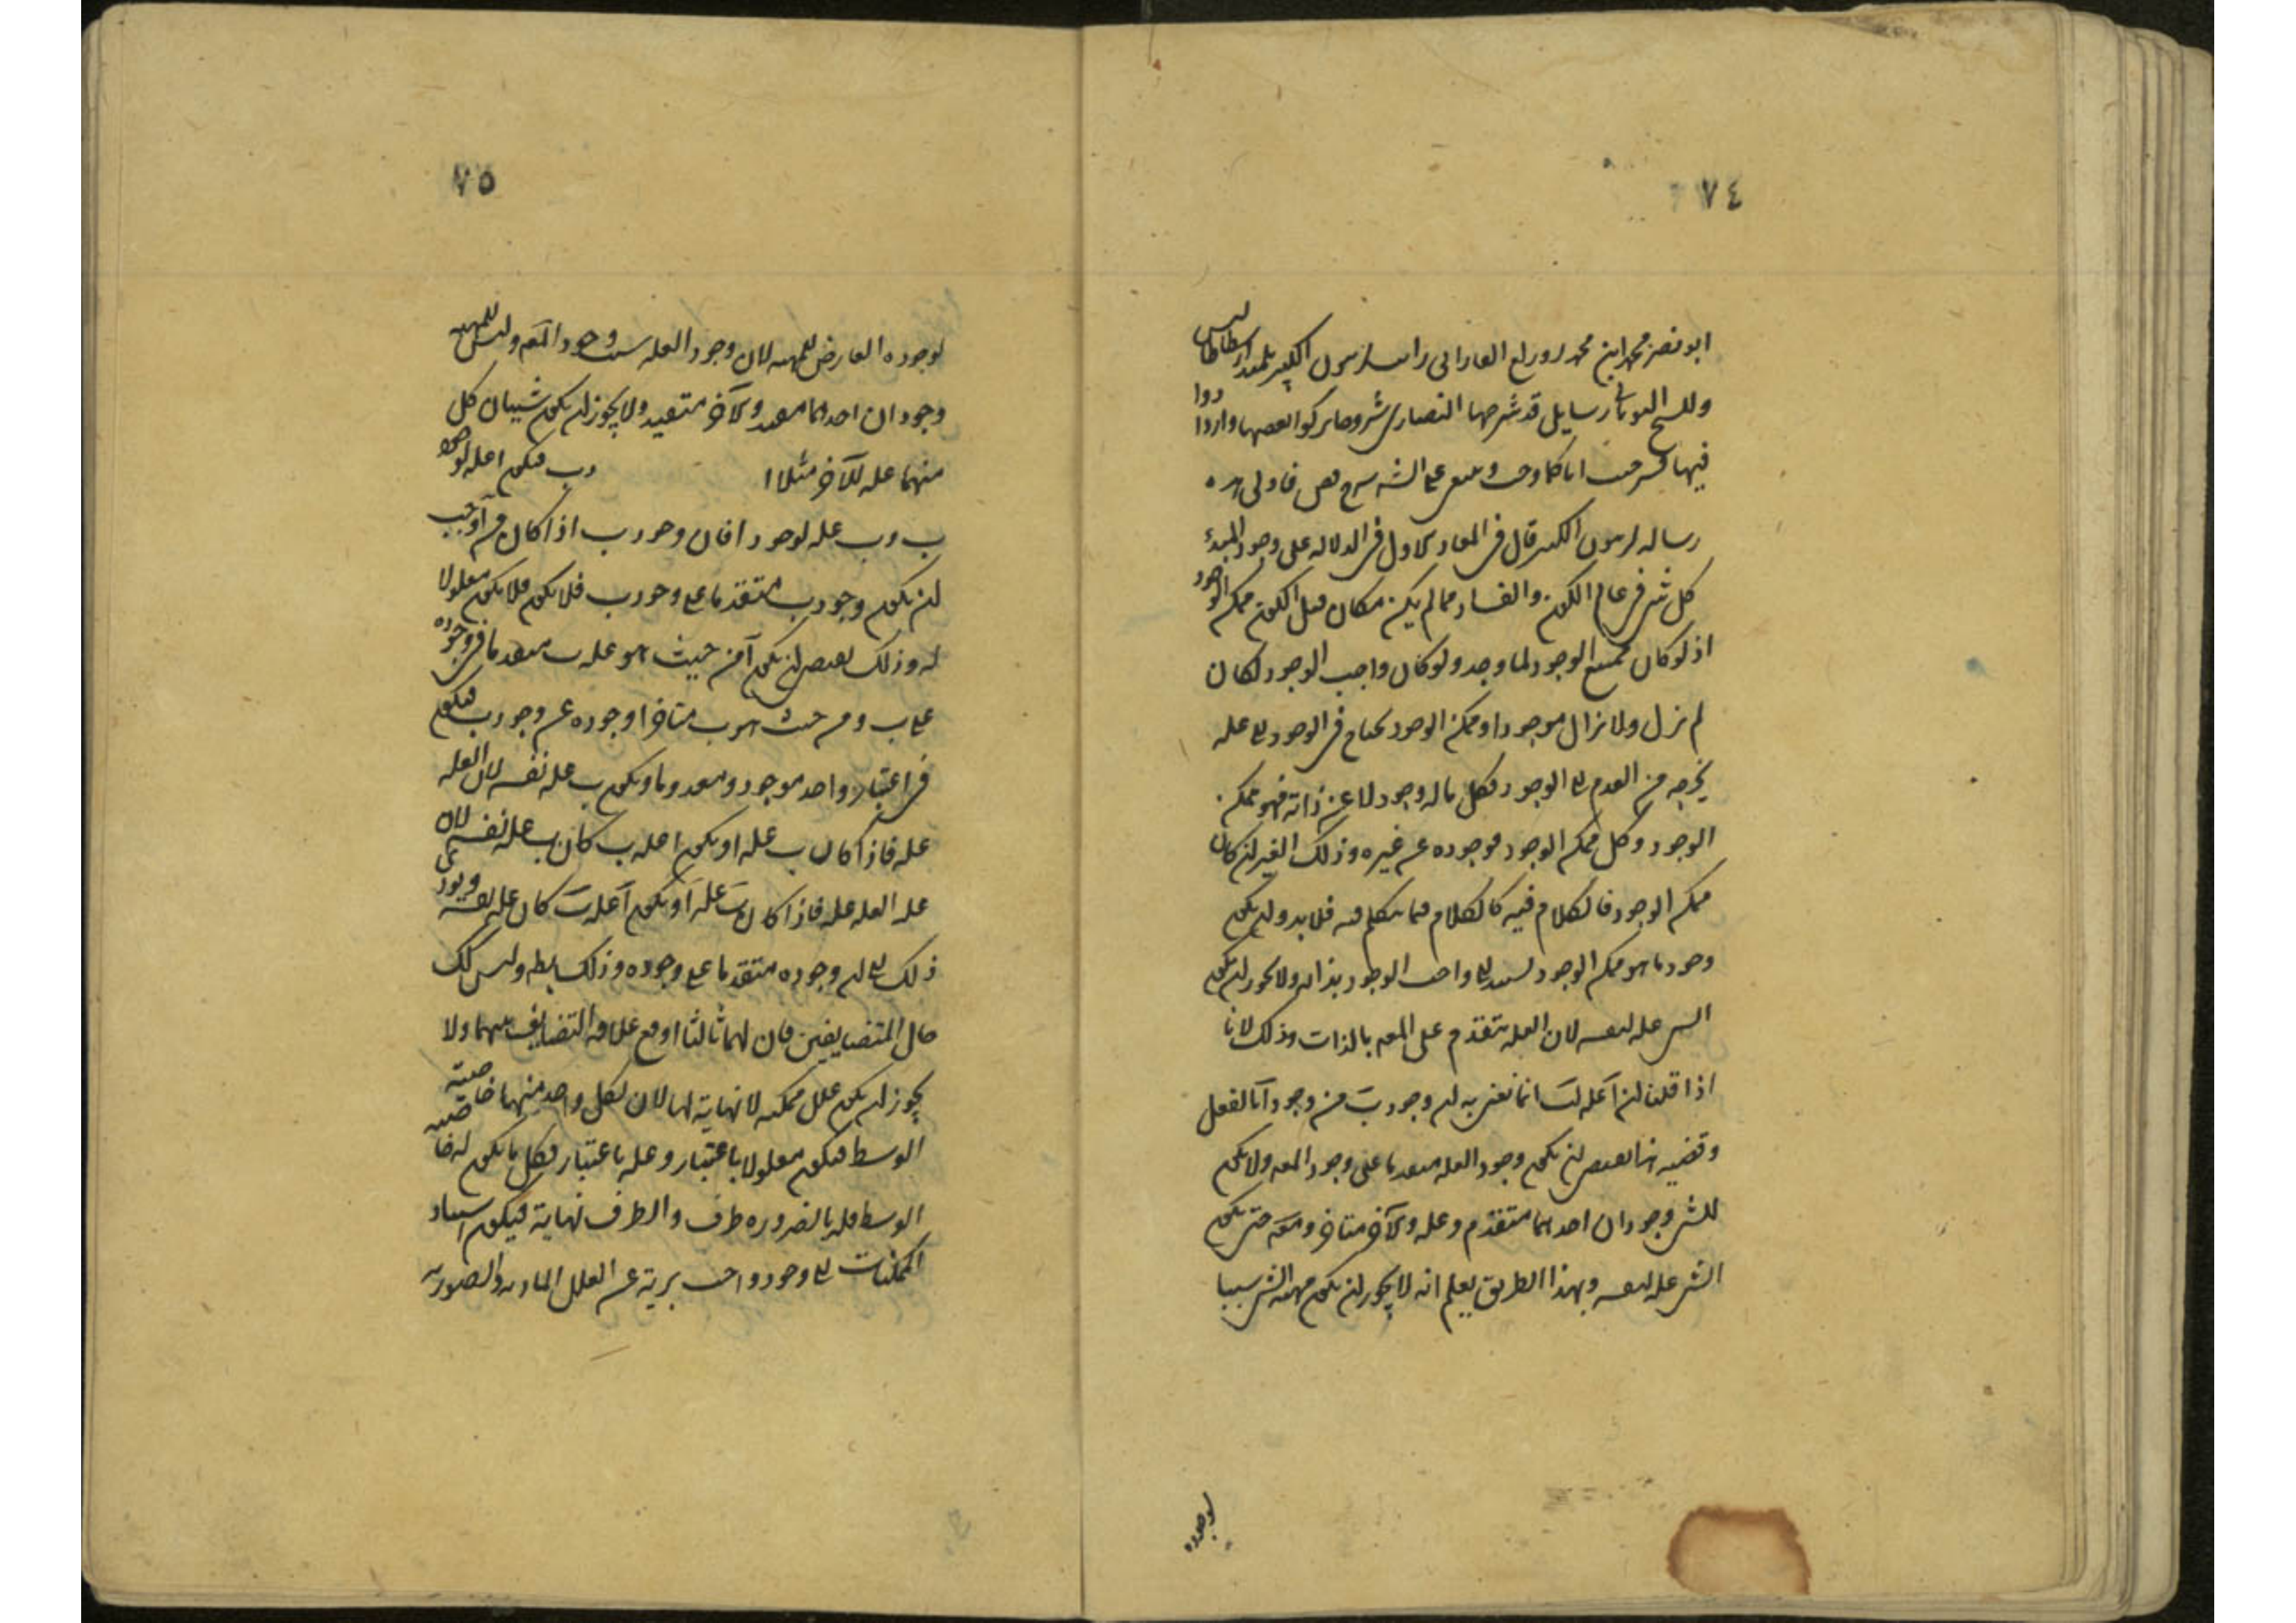 ٧٤
ابو نصر محمد ابن محمد الفارابى رايت لزينون الكبير تلميذ ارسطاطاليس
وللشيخ اليونانى رسايل قد شرحها النصارى شروحا تركوا بعضها وزادوا
فيها فشرحت انا كما وجب على الشارح شرح نص فاولى هذه
رساله لزينون الكبير قال فى المعاد الاول فى الدلاله على وجود المبدء
كل شى فى عالم الكون والفساد مما لم يكن فكان قبل الكون ممكن الوجود
اذ لو كان ممتنع الوجود لما وجد ولو كان واجب الوجود لكان
لم يزل ولا يزال موجودا وممكن الوجود يحتاج فى الوجود الى عله
يخرجه من العدم الى الوجود فكل ما له وجود لا عن ذاته فهو ممكن
الوجود وكل ممكن الوجود فوجوده عن غيره وذلك الغير ان كان
ممكن الوجود فالكلام فيه كالكلام فيما نتكلم فيه فلا بد وان يكون
وجود ما هو ممكن الوجود يستند الى واجب الوجود بذاته ولا يجوز ان يكون
الشى عله لنفسه لان العله تتقدم على المعلم بالذات وذلك لانا
اذا قلنا ان آ عله لب انما نعنى به ان وجود ب من وجود آ بالفعل
وقضيه هذا يقتضى ان يكون وجود العله متقدما على وجود المعه ولا يكون
للشى وجودان احدهما متقدم وعله والآخر متاخر ومعه حتى يكون
الشى عله لنفسه وبهذا الطريق يعلم انه لا يجوز ان يكون مهيه الشى سببا
لوجوده
٧٥
لوجوده العارض للمهيه لان وجود العله سبب وجود المعه وليس للمهيه
وجودان احدهما مفيد والآخر متفيد ولا يجوز ان يكون شيئان كل
منهما عله للآخر مثلا ا وب فيكون ا عله لوجود
ب وب عله لوجود ا فان وجود ب اذا كان من آ وجب
ان يكون وجود ب متقدما على وجود ب فلا يكون فلا يكون معلولا
له وذلك يقتضى ان يكون آ من حيث هو عله ب متقدما فى وجوده
على ب ومن حيث هو ب متاخرا وجوده عن وجود ب فيكون
فى اعتبار واحد موجود ومعدوما ويكون ب عله نفسه لان العله
عله فاذا كان ب عله ا ويكون ا عله ب كان ب عله نفسه لان
عله العله عله فاذا كان ب عله آ ويكون آ عله ب كان عله نفسه ويودى
ذلك الى ان وجوده متقدما على وجوده وذلك بطه وليس كك
حال المتضايفين فان لهما ثالثا اوقع علاقه التضايف بينهما ولا
يجوز ان يكون علل ممكنه لا نهاية لها لان لكل واحد منهما خاصيته
الوسط فيكون معلولا باعتبار وعله باعتبار فكل ما يكون له خاصيه
الوسط فله بالضروره طرف والطرف نهاية فيكون استناد
الممكنات الى وجود واجب برية عن العلل الماديه والصوريه